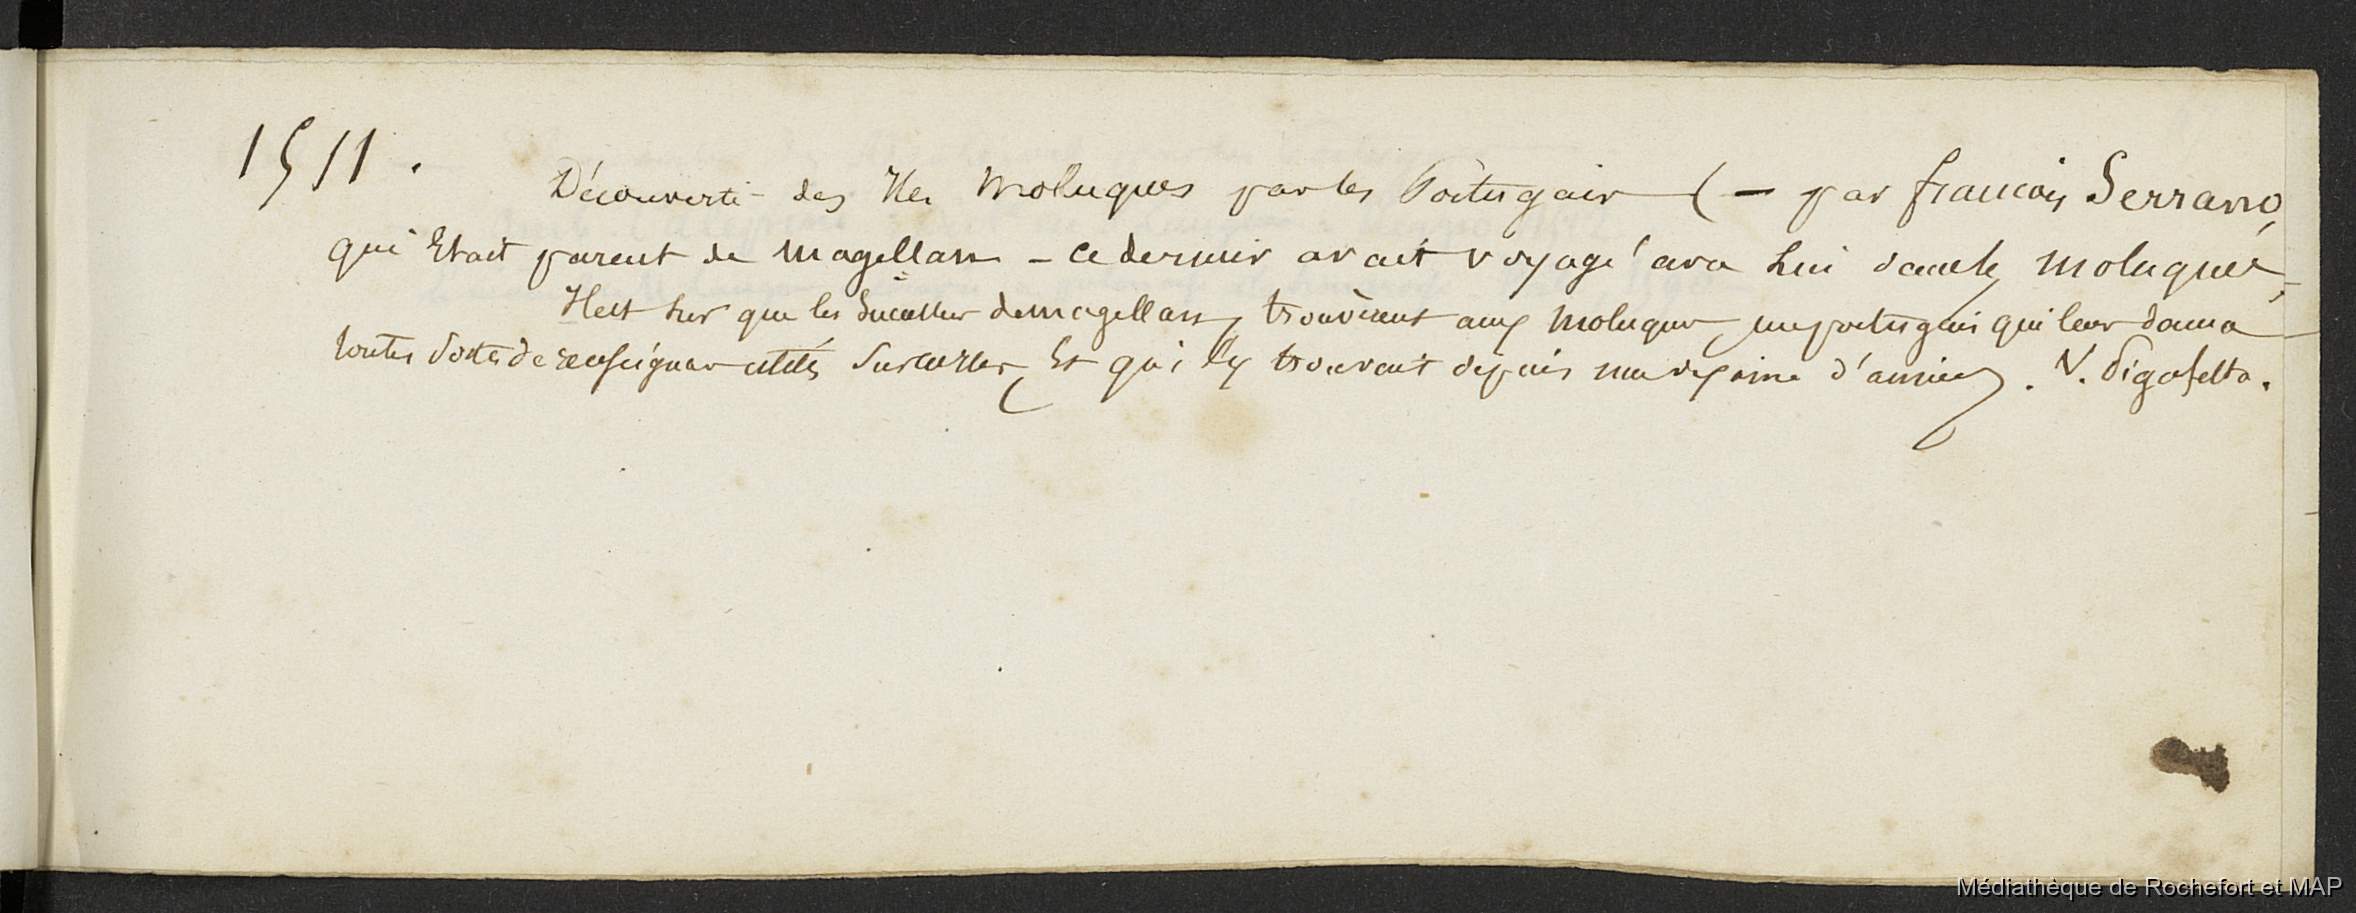 1511.
Découverte des Iles Moluques par les Portugais ( — par françois Serrano,
qui Etait parent de Magellan — ce dernier avait voyagé avec lui dans les Moluques,
Il est sur que les de magellan, trouvèrent aux Moluques, un portugais qui leur donna
toutes sortes de utiles sur Et qui s'y trouvait depuis une dizaine d'années. V. Pigafetta.
Médiathèque de Rochefort et MAP